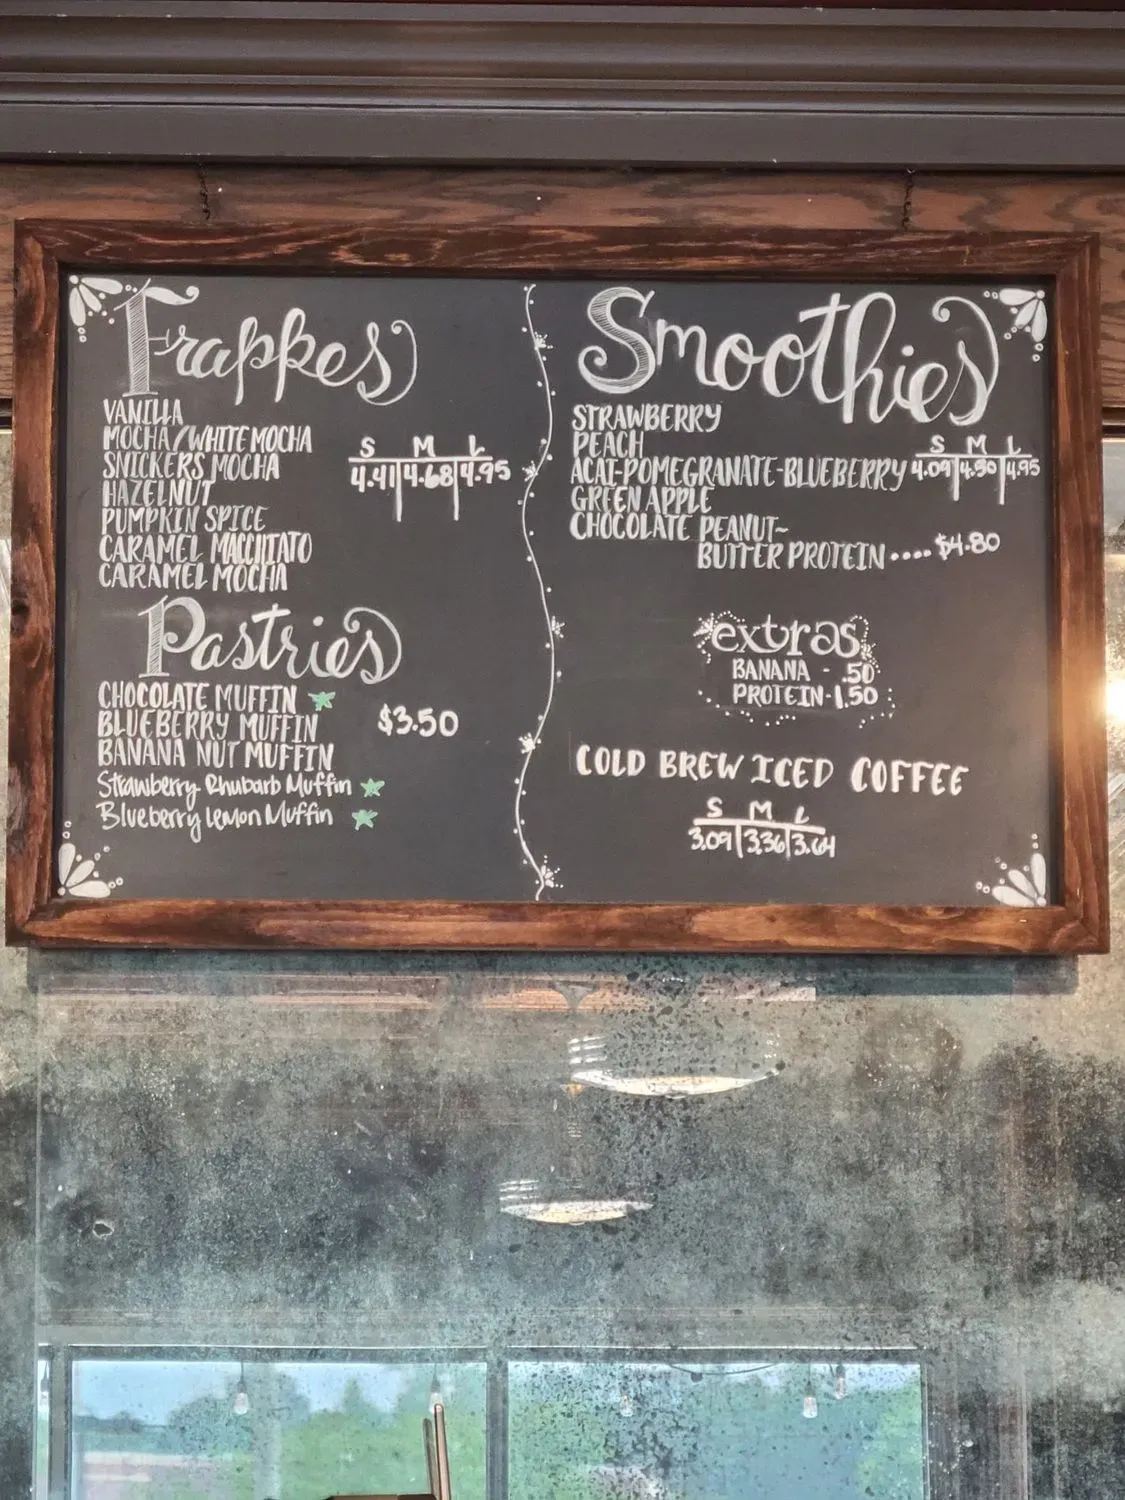 Frappes
VANILLA
MOCHA/WHITE MOCHA
SNICKERS MOCHA
HAZELNUT
PUMPKIN SPICE
CARAMEL MACCHIATO
CARAMEL MOCHA
S M L
4.41 4.68 4.95
Pastries
CHOCOLATE MUFFIN
BLUEBERRY MUFFIN
BANANA NUT MUFFIN
Strawberry Rhubarb Muffin
Blueberry Lemon Muffin
$3.50
Smoothies
STRAWBERRY
PEACH
ACAI-POMEGRANATE-BLUEBERRY
GREEN APPLE
CHOCOLATE PEANUT~
BUTTER PROTEIN .... $4.80
S M L
4.09 4.50 4.95
extras
BANANA - .50
PROTEIN - 1.50
COLD BREW ICED COFFEE
S M L
3.09 3.36 3.64